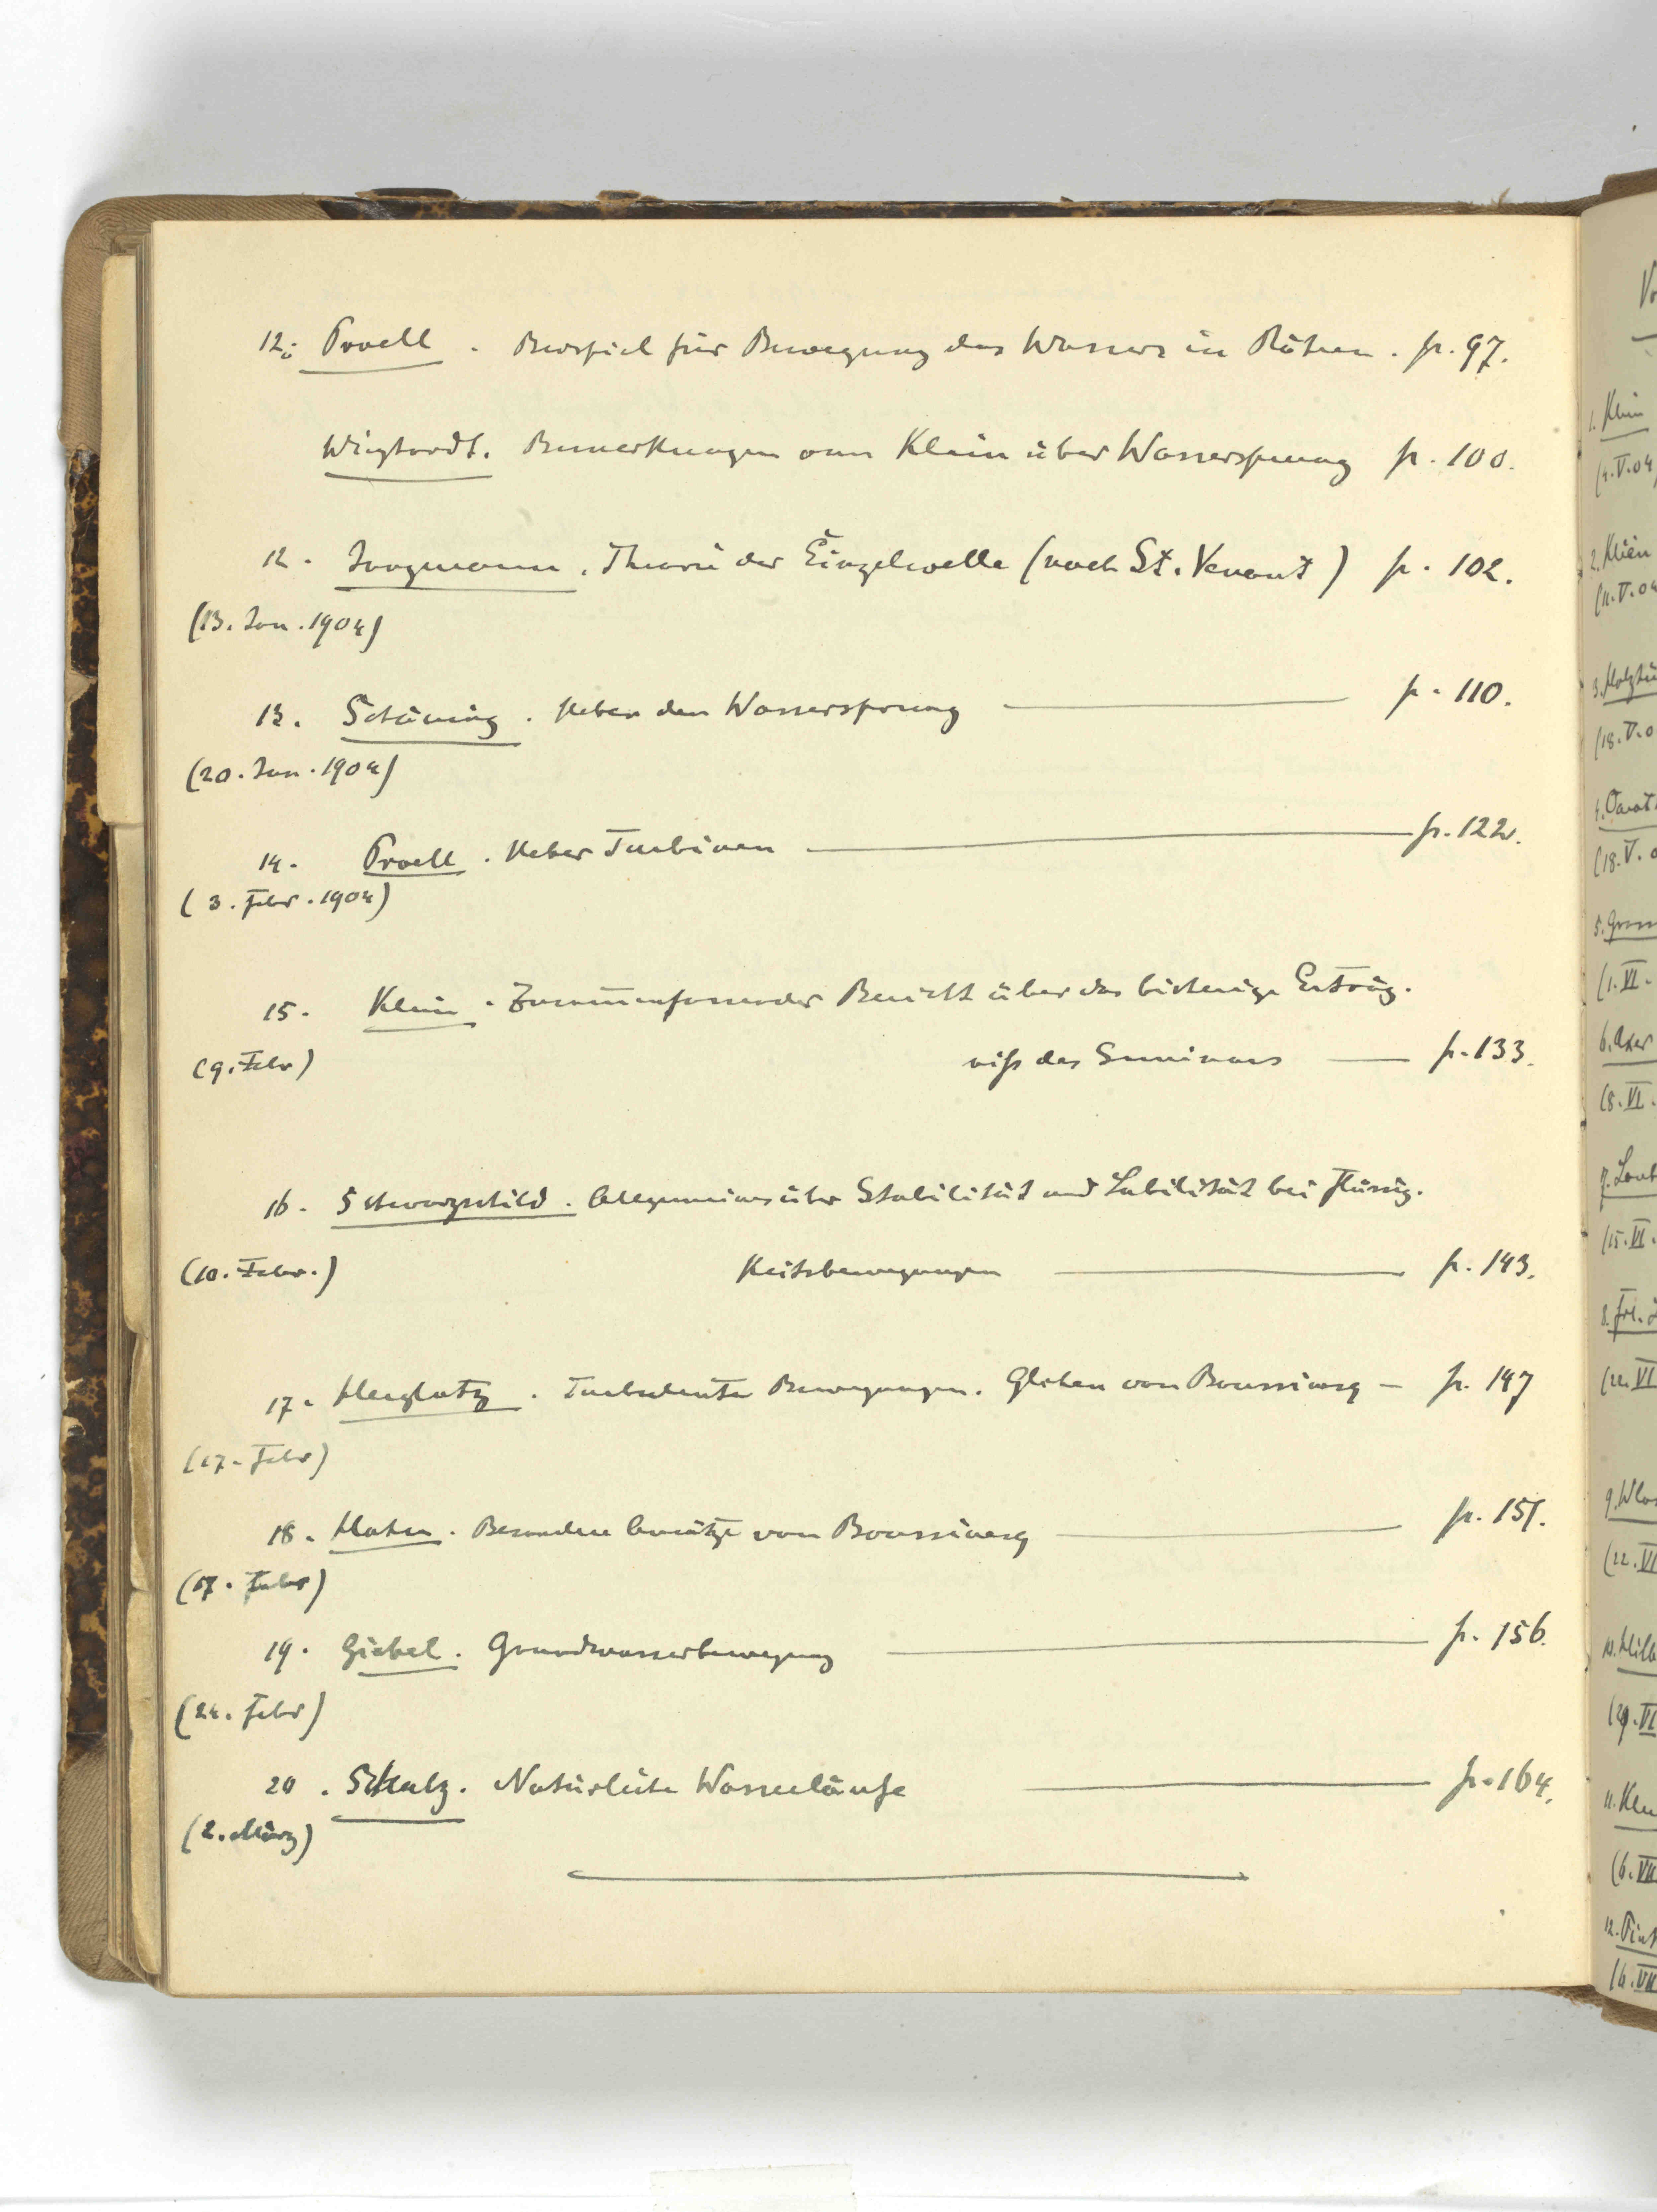 12. Proell. Beispiel für Bewegung des Wassers in Röhren. p. 97.
Wieghardt. Bemerkungen von Klein über Wassersprung p. 100.
12. Jungmann. Theorie der Einzelwelle (nach St. Venant) p. 102.
(13. Jan. 1904)
13. Schüning. Ueber den Wassersprung — p. 110.
(20. Jan. 1904)
14. Proell. Ueber Turbinen — p. 122.
(3. Febr. 1904)
15. Klein. Zusammenfassender Bericht über das bisherige Erträg.
(9. Febr) niß des Seminars — p. 133.
16. Schwarzschild. Allgemeines über Stabilität und Labilität bei Flüssig.
(10. Febr.) keitsbewegungen — p. 143.
17. Herglotz. Turbulente Bewegungen. Glchen von Boussinesq — p. 147
(17. Febr)
18. Hahn. Besondere Ansätze von Boussinesq — p. 151.
(17. Febr)
19. Giebel. Grundwasserbewegung — p. 156.
(24. Febr)
20. Schulz. Natürliche Wasserläufe — p. 164.
(2. März)
1. Klein
(4.V.04)
2. Klein
(11.V.04
(18.V.0
(18.V.0
(1.VI.
6. Axer
(8.VI.
(15.VI.
8. Frl.
(22.VI
(22.VI
(29.VI
(6.VII
(6.VII